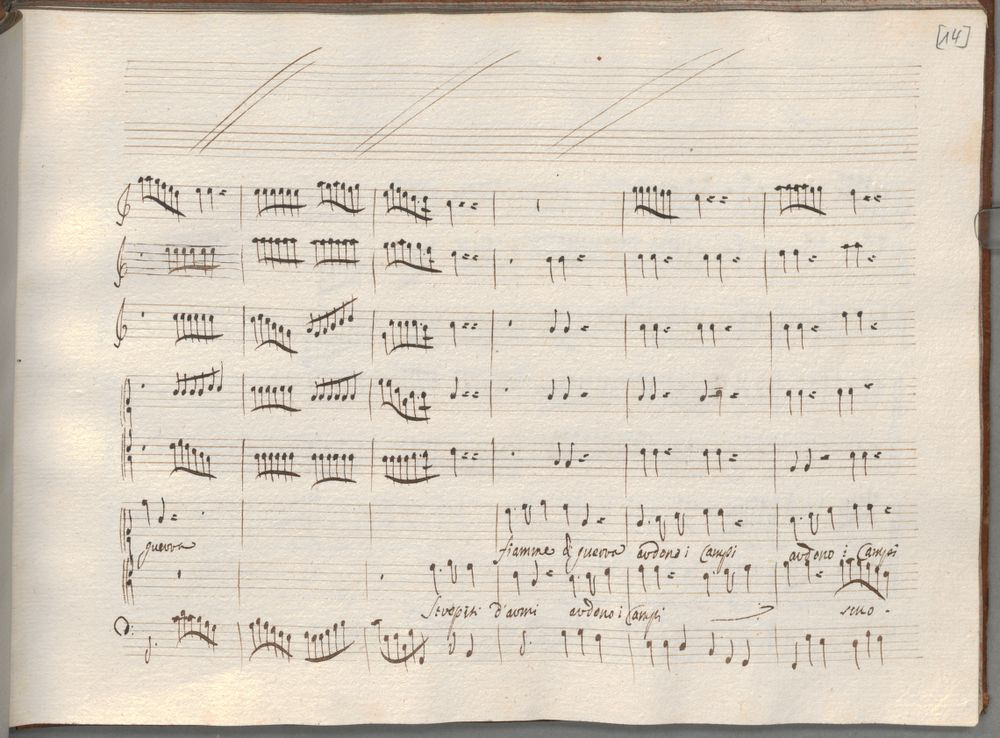 [14]
guerra
fiamme di guerra ardono i Campi ardono i Campi
Strepiti d'armi ardono i Campi